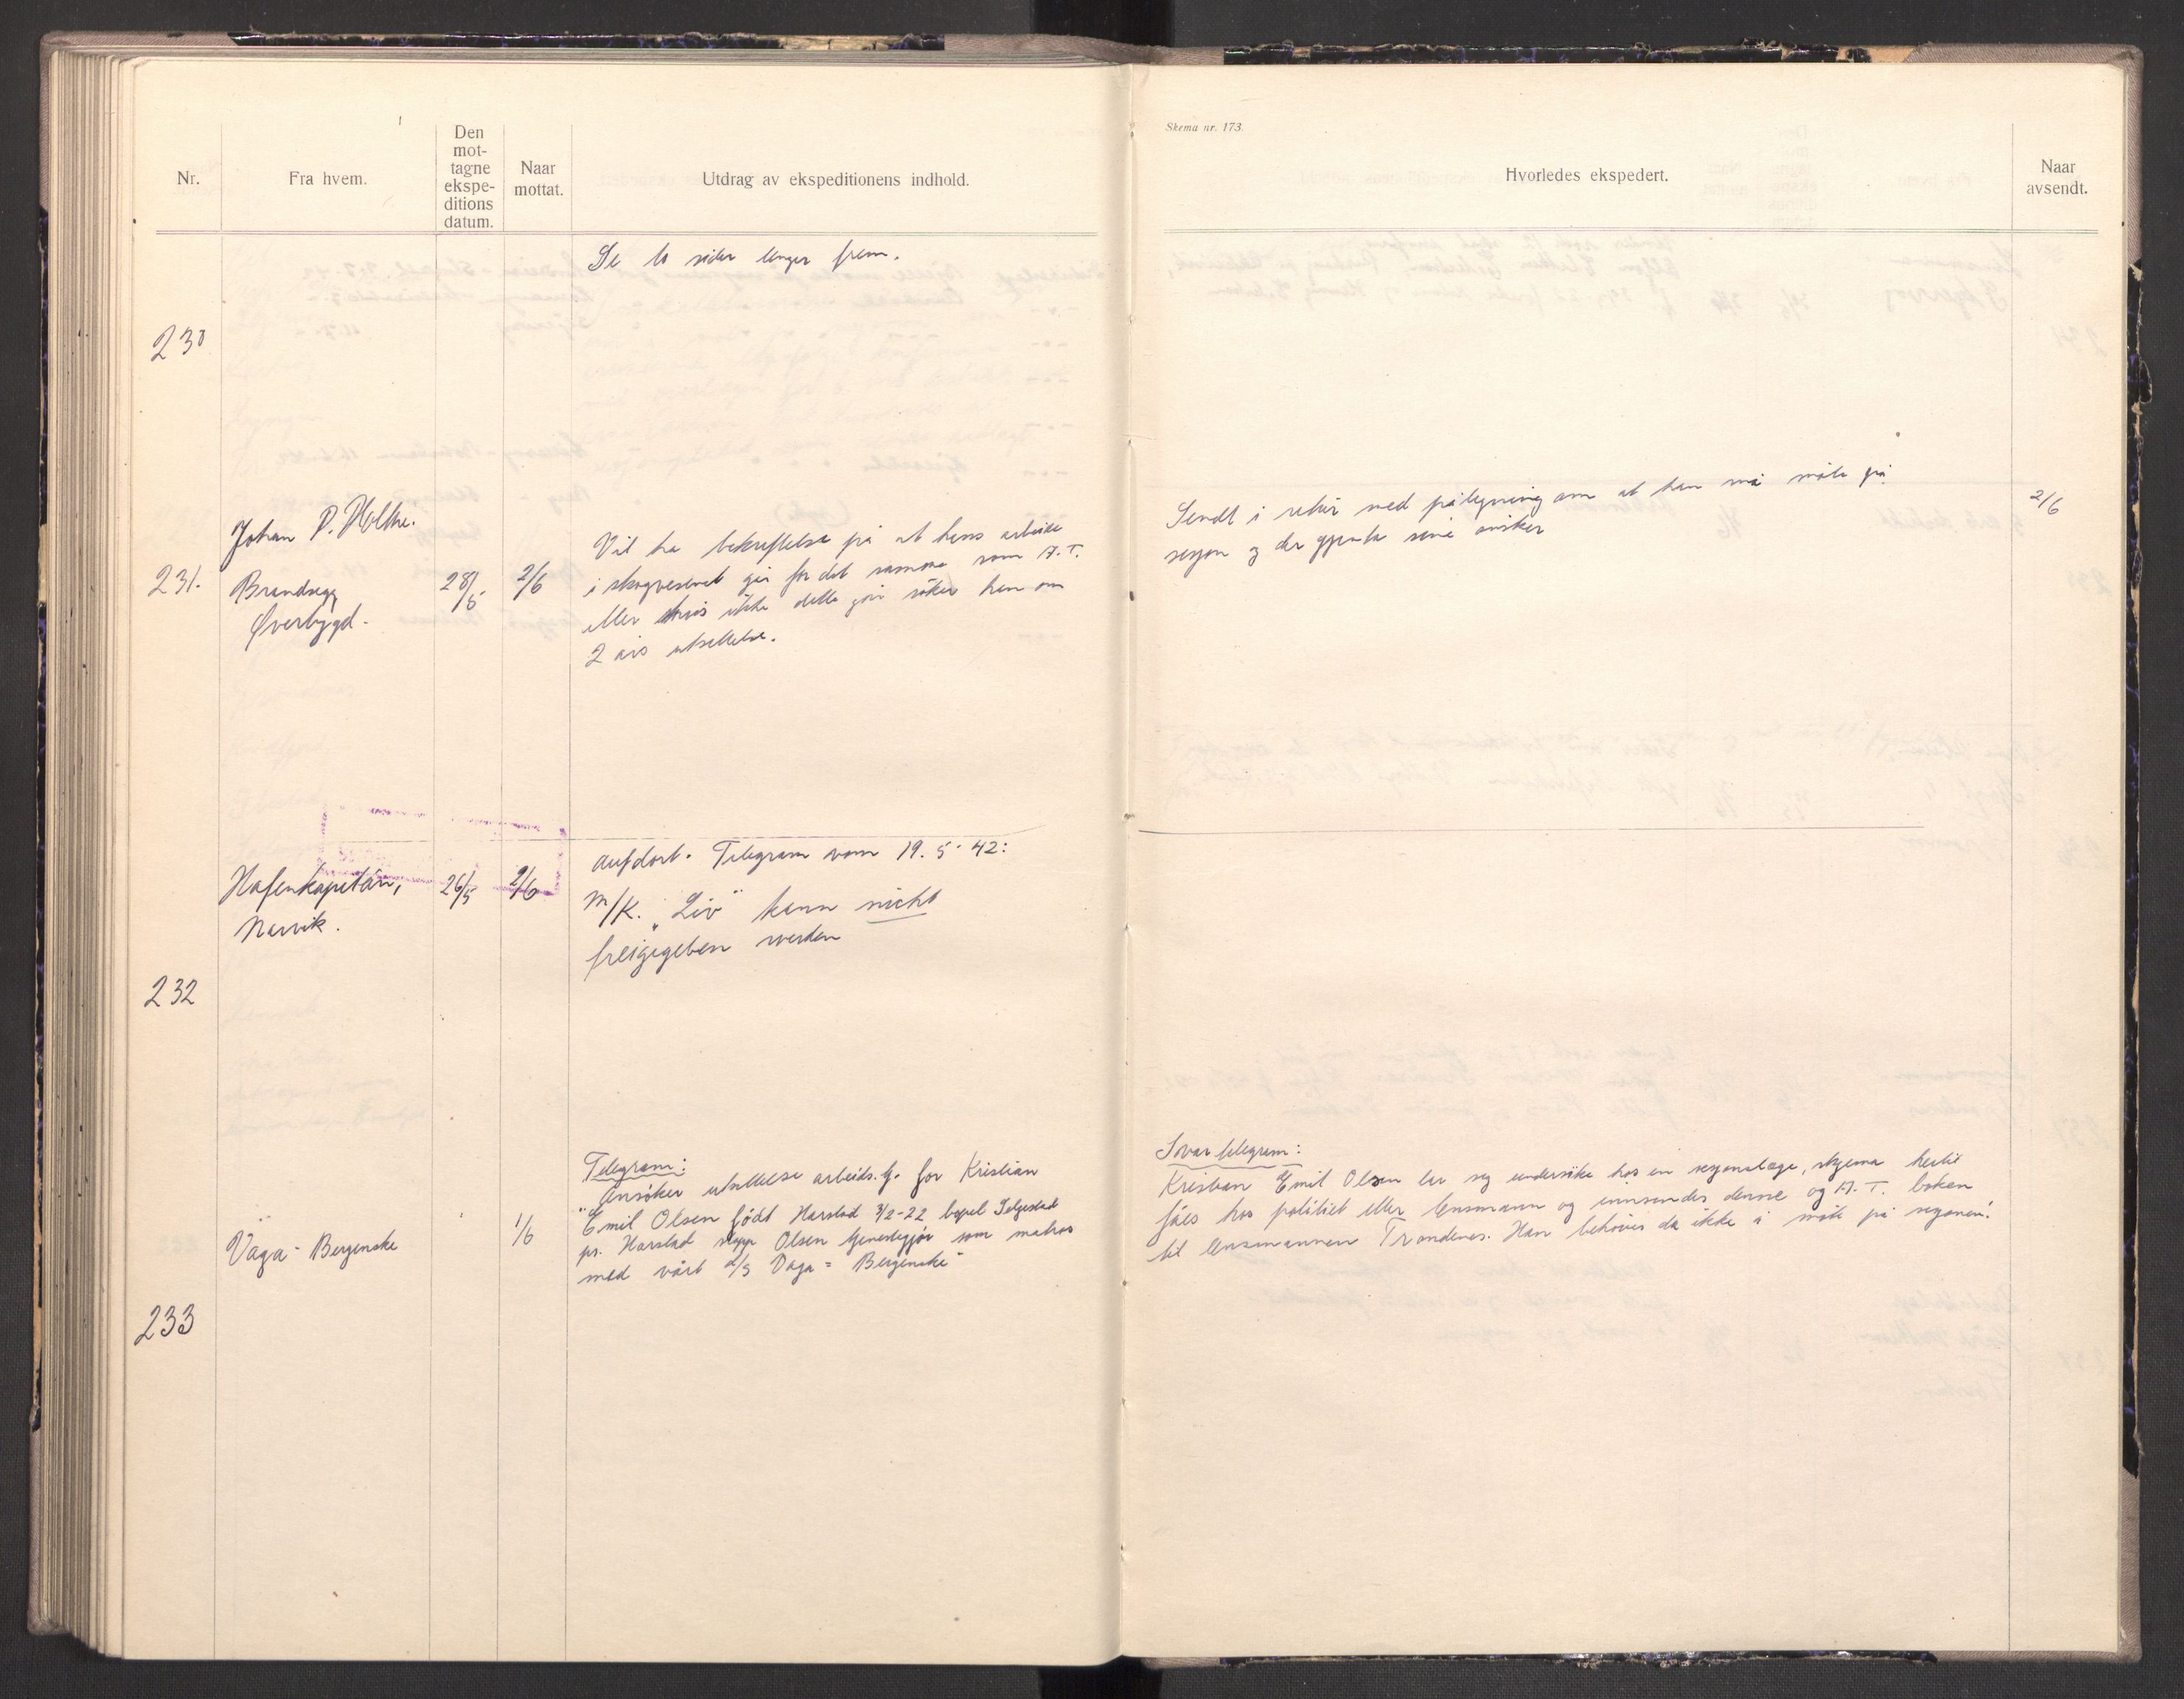 Skema nr. 173.
Nr.
Fra hvem.
Den
mot-
tagne
ekspe-
ditions
datum.
Naar
mottat.
Utdrag av ekspeditionens indhold.
Hvorledes ekspedert.
Naar
avsendt.
230
Se to sider lenger frem.
231.
Johan P. Holthe.
Brandsegg
Øverbygd.
28/5
2/6
Vil ha bekreftelse på at hans arbeide
i skogvesenet går for det samme som A.T.
eller hvis ikke dette går søker han om
2 års utsettelse.
Sendt i retur med påtegning om at han må møte på
sesjon og der gjenta sine ønsker
2/6
232
Hafenkapitän,
Narvik.
26/5
2/6
auf dort. Telegram vom 19.5.42:
M/K. "Liv" kann nicht
freigegeben werden
233
Vaga - Bergenske
1/6
Telegram:
"Ansøker utsettelse arbeids.tj. for Kristian
Emil Olsen født Harstad 3/2-22 bopel
ps. Harstad stopp Olsen tjenestegjør som matros
med vårt d/s Vaga = Bergenske"
Svartelegram:
Kristian Emil Olsen lar seg undersøke hos en sesjonslæge, skjema hertil
fåes hos politiet eller lensmann og innsendes denne og A.T. boken
til lensmannen Trondenes. Han behøver da ikke å møte på sesjonen.